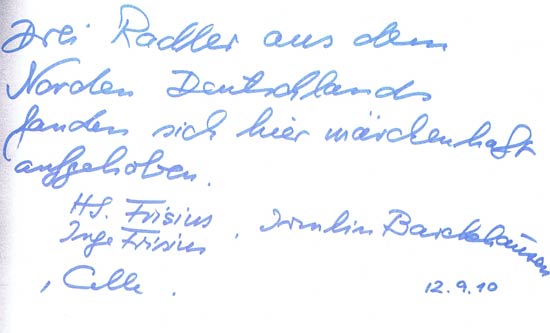 Drei Radler aus dem
Norden Deutschlands
fanden sich hier märchenhaft
aufgehoben.
HJ. Frisius
Inge Frisius, Irmlin Barckhausen
, Celle.
12.9.10